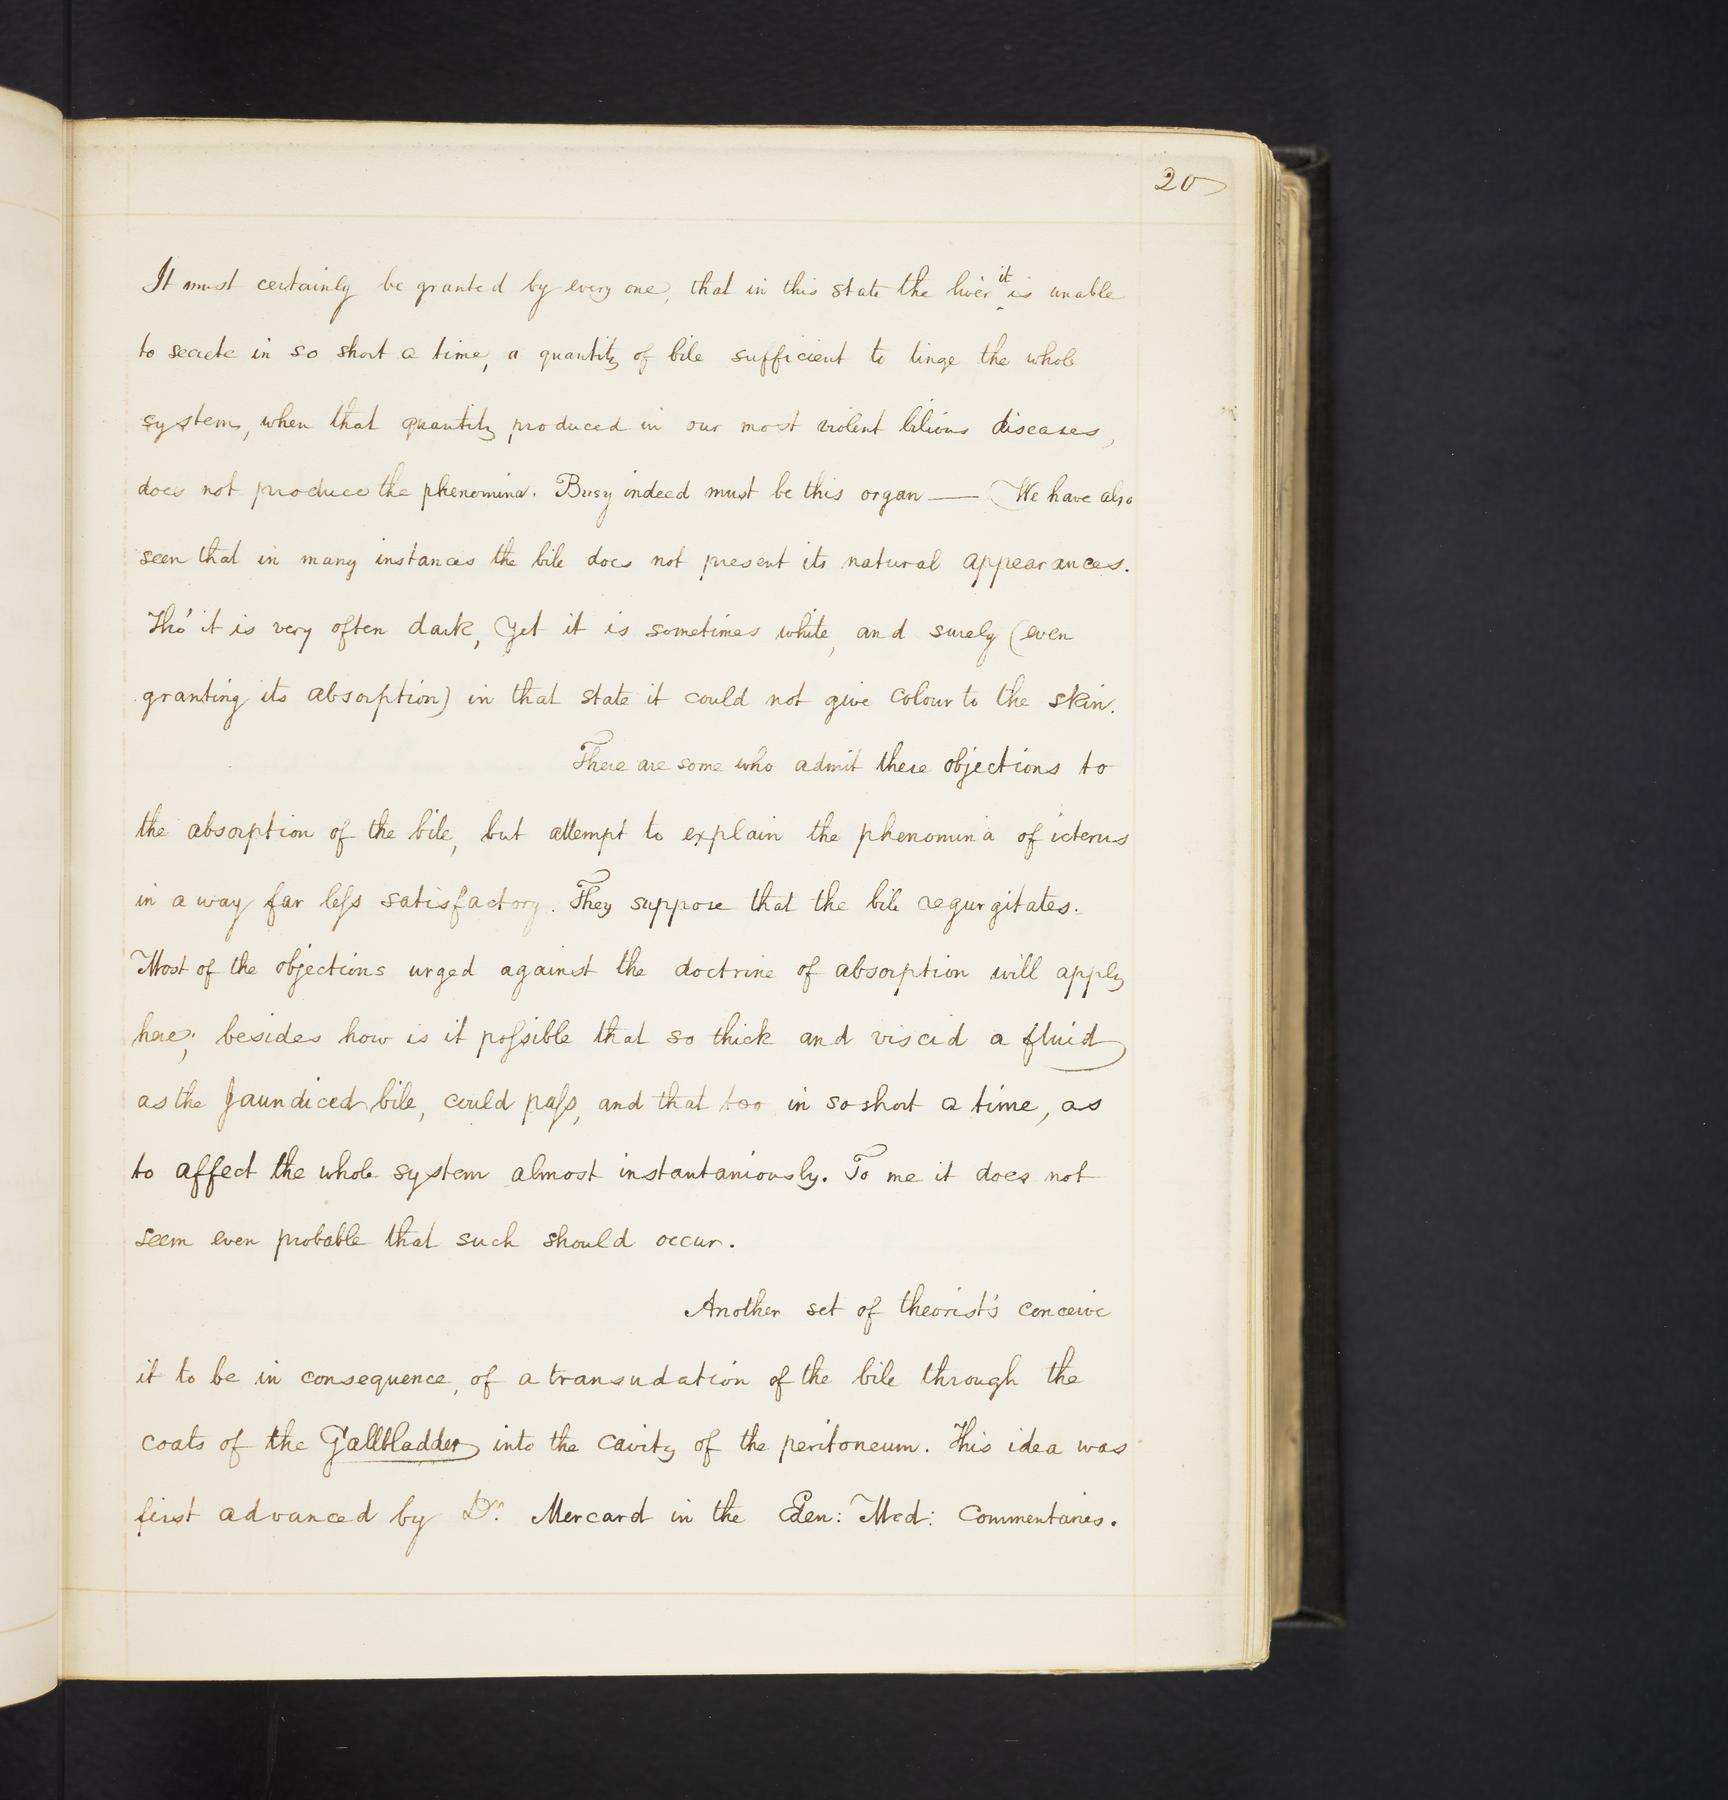 20
It must certainly be granted by every one, that in this state the liver ^it is unable
to secrete in so short a time, a quantity of bile sufficient to tinge the whole
system, when that quantity produced in our most violent bilious diseases,
does not produce the phenomina. Busy indeed must be this organ — We have also
seen that in many instances the bile does not present its natural appearances.
Tho' it is very often dark, Yet it is sometimes white, and surely (even
granting its absorption) in that state it could not give colour to the skin.
There are some who admit these objections to
the absorption of the bile, but attempt to explain the phenomina of icterus
in a way far leſs satisfactory. They suppose that the bile regurgitates.
Most of the objections urged against the doctrine of absorption will apply
here; besides how is it poſsible that so thick and viscid a fluid
as the Jaundiced bile, could paſs, and that too in so short a time, as
to affect the whole system almost instantaniously. To me it does not
seem even probable that such should occur.
Another set of theorist's conceive
it to be in consequence, of a transudation of the bile through the
coats of the Gallbladder into the cavity of the peritoneum. This idea was
first advanced by Dr. Mercard in the Eden: Med: Commentaries.